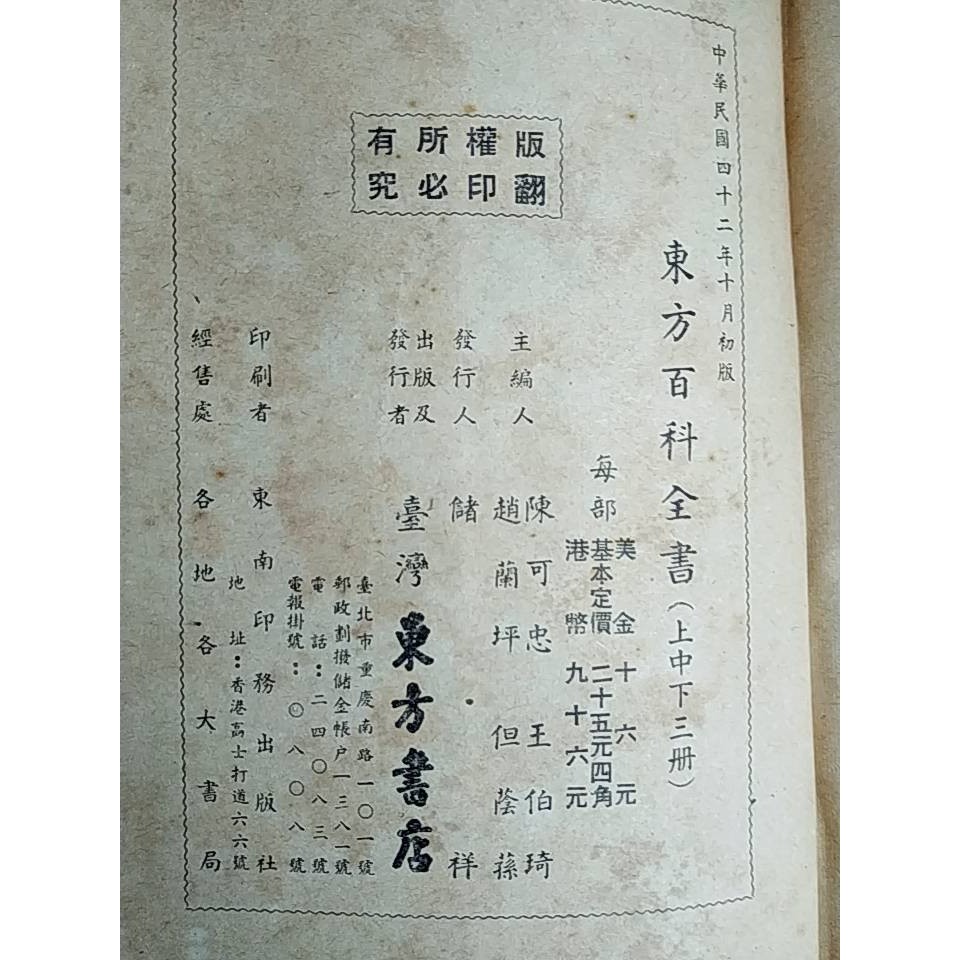 中華民國四十二年十月初版
東方百科全書（上中下三册）
每部
美金十六元
基本定價二十五元四角
港幣九十六元
主編人
陳可忠 王伯琦
趙蘭坪 但蔭蓀
發行人 儲 祥
出版及
發行者
臺灣東方書店
臺北市重慶南路一〇一號
郵政劃撥儲金帳户一三八一號
電話：二四〇八三號
電報掛號：〇八〇八號
印刷者 東南印務出版社
地址：香港高士打道六六號
經售處 各地各大書局
版權所有
翻印必究